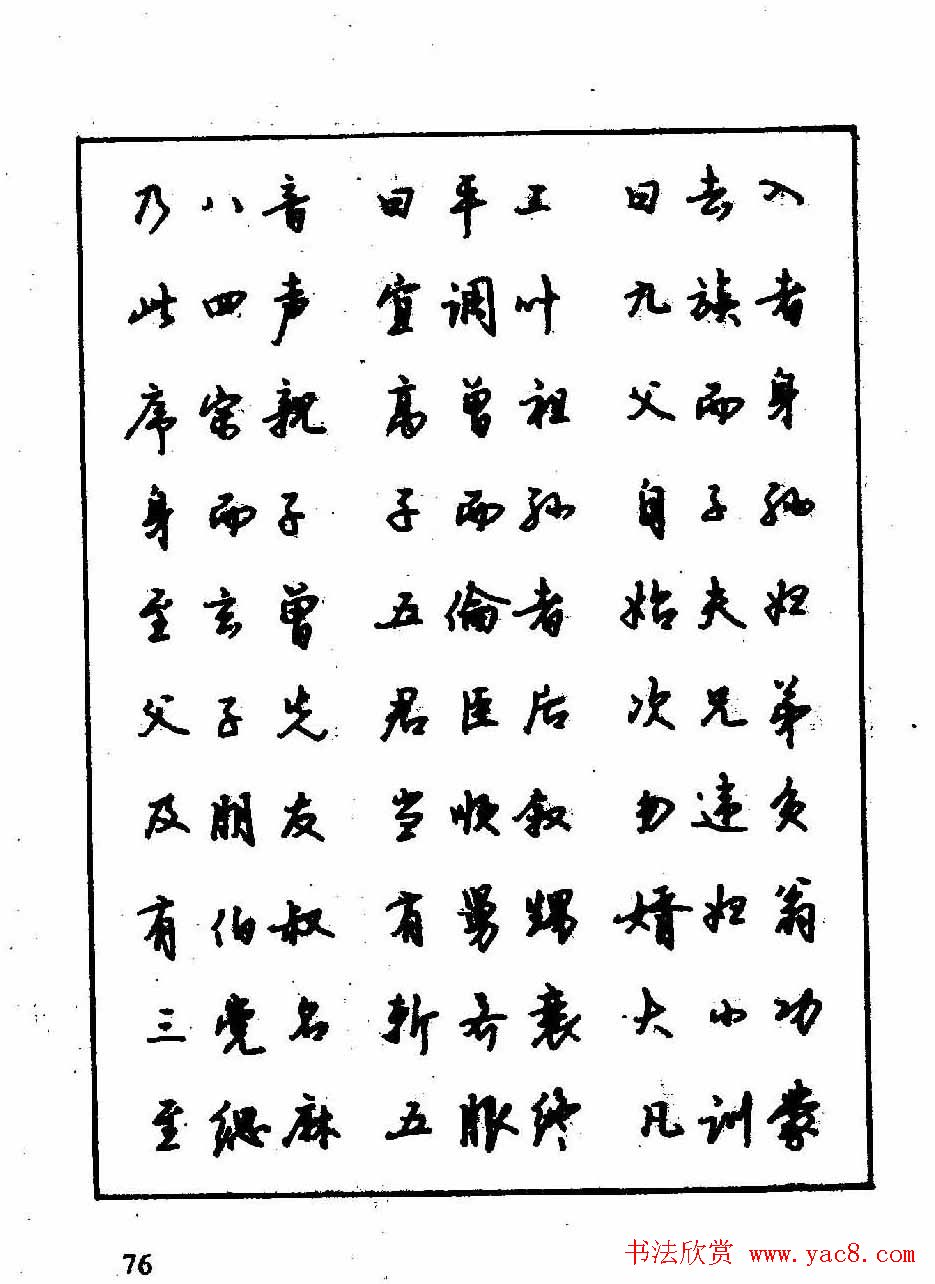 乃八音 曰平上 曰去入
此四声 宜调叶 九族者
席宗親 高曾祖 父而身
身而子 子而孙 自子孙
至玄曾 五倫者 始夫妇
父子先 君臣后 次兄弟
及朋友 当顺叙 勿违负
有伯叔 有舅甥 婿妇翁
三党名 斩齐衰 大小功
至缌麻 五服终 凡训蒙
76
书法欣赏 www.yac8.com